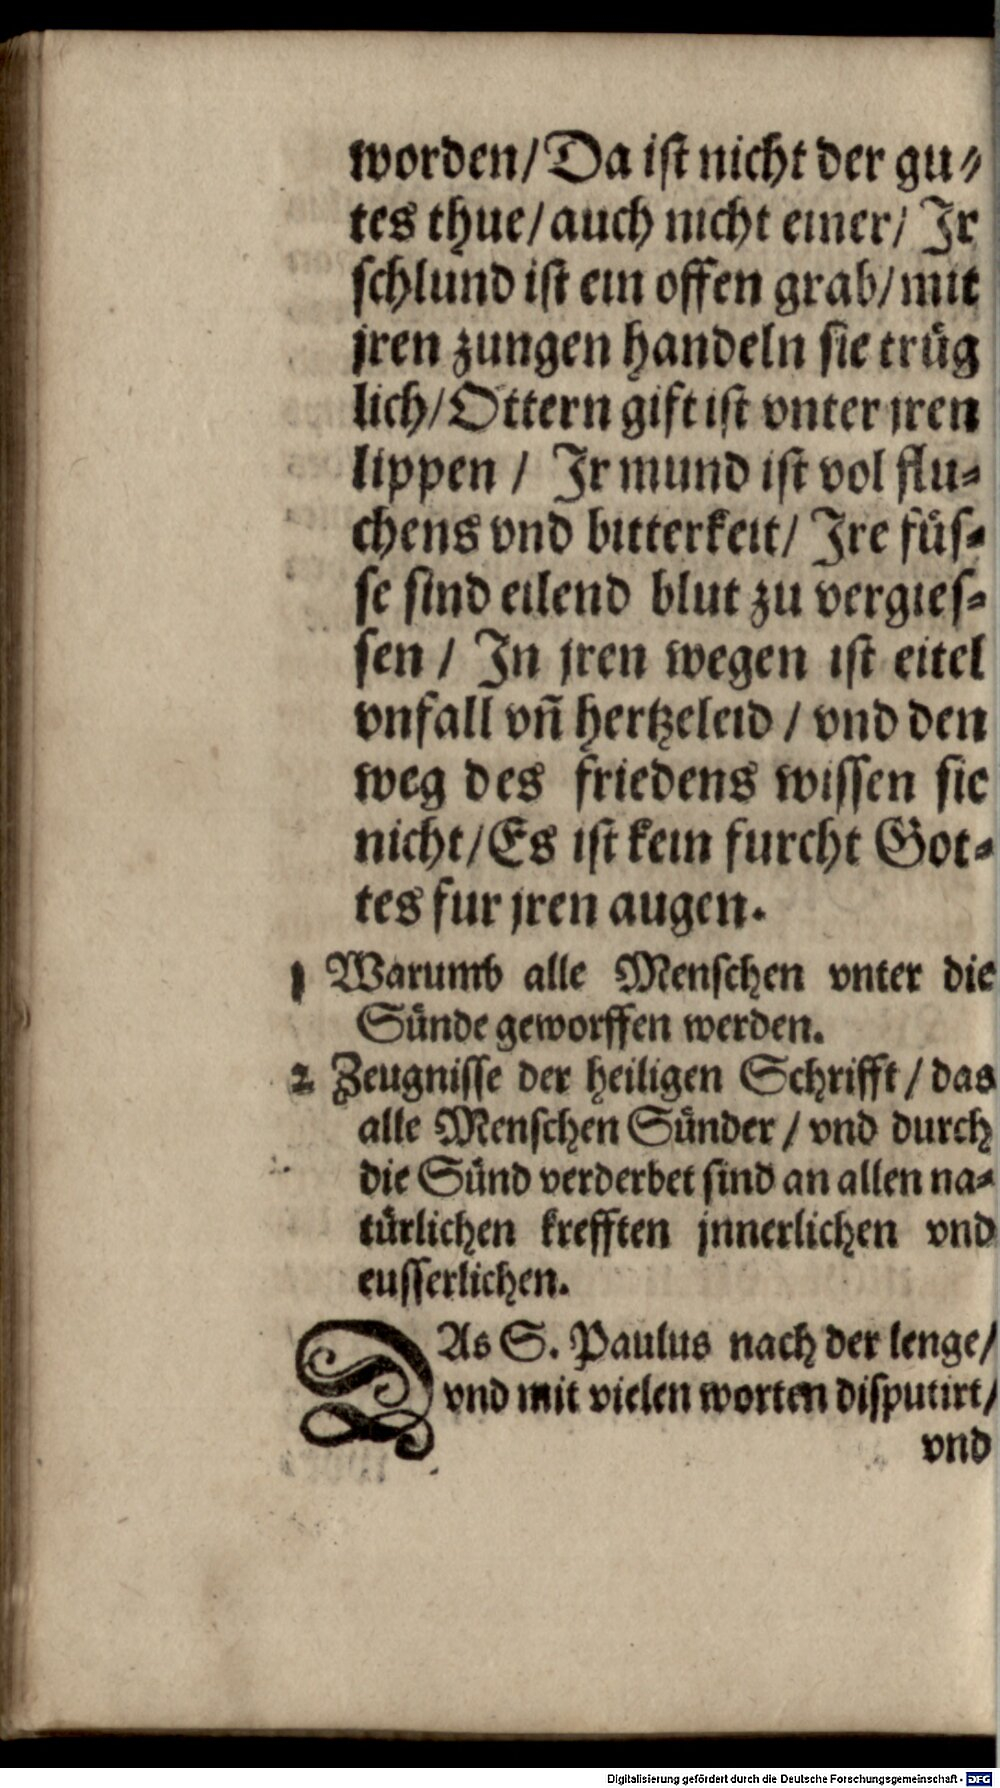 worden/ Da ist nicht der gu⸗
tes thue/ auch nicht einer/ Jr
schlund ist ein offen grab/ mit
jren zungen handeln sie trüg
lich/ Ottern gift ist vnter jren
lippen / Jr mund ist vol flu⸗
chens vnd bitterkeit/ Jre füs⸗
se sind eilend blut zu vergies⸗
sen / Jn jren wegen ist eitel
vnfall vñ hertzeleid / vnd den
weg des friedens wissen sie
nicht/ Es ist kein furcht Got⸗
tes fur jren augen.
1 Warumb alle Menschen vnter die
Sünde geworffen werden.
2 Zeugnisse der heiligen Schrifft / das
alle Menschen Sünder / vnd durch
die Sünd verderbet sind an allen na⸗
türlichen krefften jnnerlichen vnd
eusserlichen.
DAs S. Paulus nach der lenge/
vnd mit vielen worten disputirt/
vnd
Digitalisierung gefördert durch die Deutsche Forschungsgemeinschaft - DFG